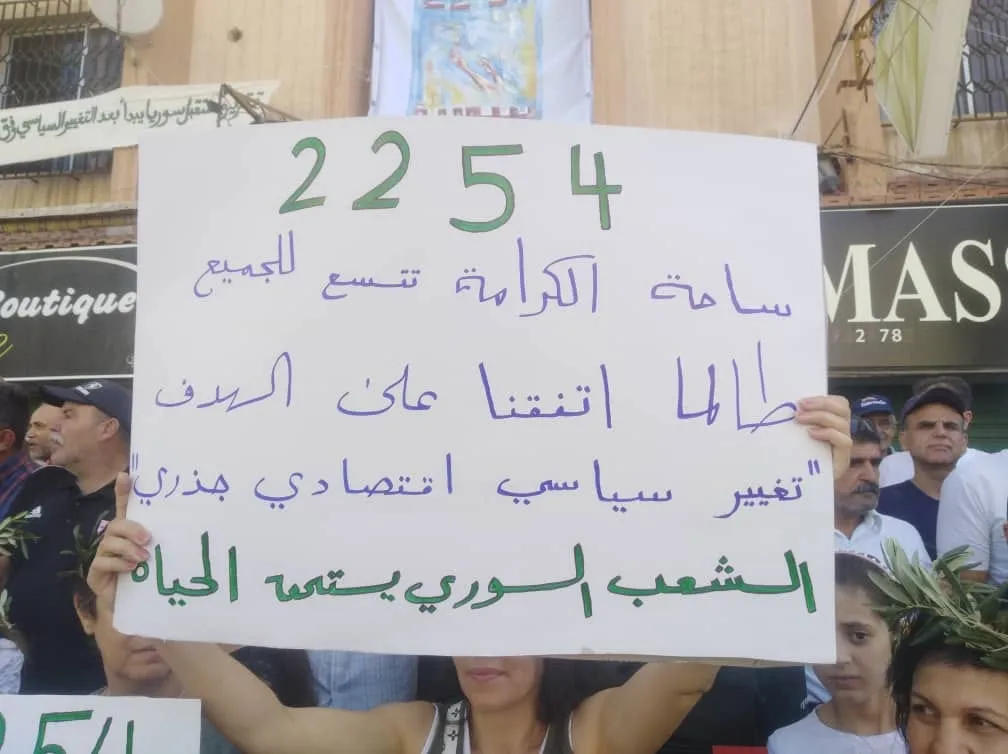 مستقبل سوريا يبدأ بعد التغيير السياسي وفق
2254
ساحة الكرامة تتسع للجميع
طالما اتفقنا على الهدف
"تغيير سياسي اقتصادي جذري"
الشعب السوري يستحق الحياة
Boutique
MASS
2 78
254